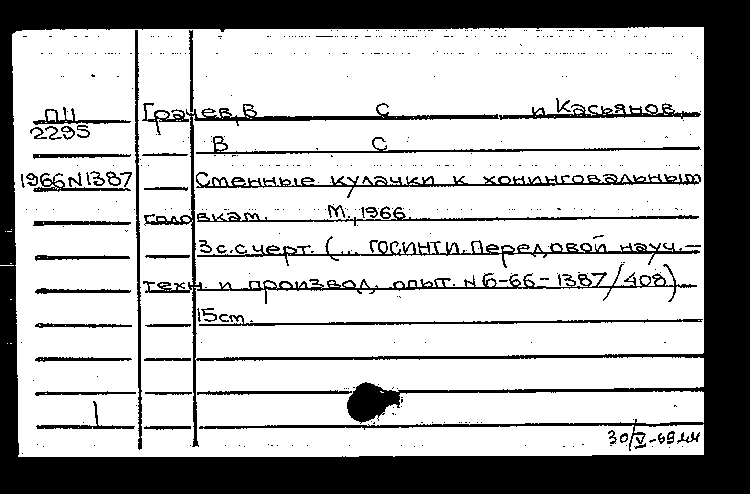 П11 Грачев, В С и Касьянов,
2295 В С
1966 N 1387 Сменные кулачки к хонинговальным
головкам. М., 1966.
3 с. с черт. (... ГОСИНТИ. Передовой науч.-
техн. и производ. опыт. N 6-66-1387/408)
15 см.
30/V-66 мм